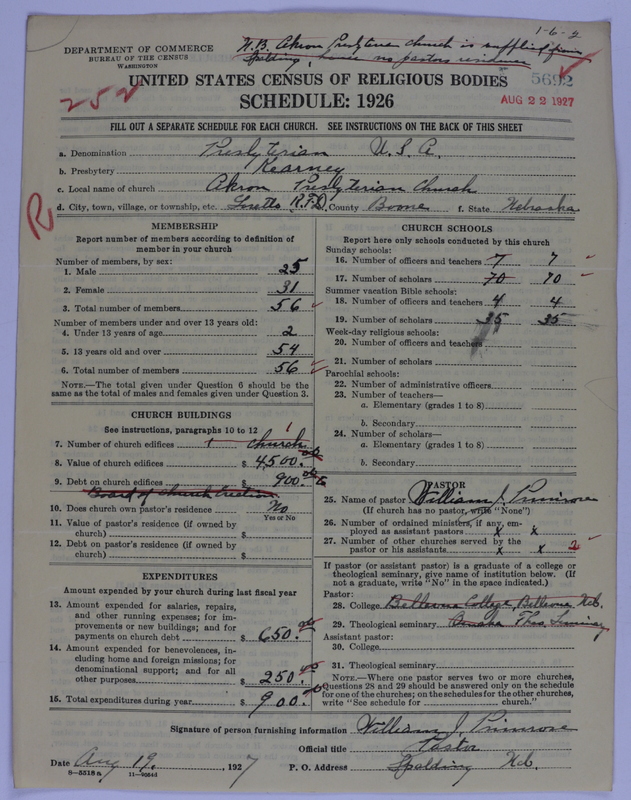 1-6-2
DEPARTMENT OF COMMERCE
BUREAU OF THE CENSUS
WASHINGTON
N.B. Akron Presbyterian church is supplied from
Spalding, hence no pastors residence
5692
252
AUG 22 1927
UNITED STATES CENSUS OF RELIGIOUS BODIES
SCHEDULE: 1926
FILL OUT A SEPARATE SCHEDULE FOR EACH CHURCH. SEE INSTRUCTIONS ON THE BACK OF THIS SHEET
a. Denomination Presbyterian U. S. A.
b. Presbytery Kearney
c. Local name of church Akron Presbyterian Church
R
d. City, town, village, or township, etc. Loretto R.F.D. County Boone f. State Nebraska
MEMBERSHIP
Report number of members according to definition of
member in your church
Number of members, by sex:
1. Male 25
2. Female 31
3. Total number of members 56
Number of members under and over 13 years old:
4. Under 13 years of age 2
5. 13 years old and over 54
6. Total number of members 56
NOTE.—The total given under Question 6 should be the
same as the total of males and females given under Question 3.
CHURCH BUILDINGS
See instructions, paragraphs 10 to 12
7. Number of church edifices 1 church 1
8. Value of church edifices $ 4500.00
9. Debt on church edifices $ 900.00
Board of Church Erection
10. Does church own pastor's residence No
Yes or No
11. Value of pastor's residence (if owned by
church) $
12. Debt on pastor's residence (if owned by
church) $
EXPENDITURES
Amount expended by your church during last fiscal year
13. Amount expended for salaries, repairs,
and other running expenses; for im-
provements or new buildings; and for
payments on church debt $ 650.00
14. Amount expended for benevolences, in-
cluding home and foreign missions; for
denominational support; and for all
other purposes $ 250.00
15. Total expenditures during year $ 900.00
CHURCH SCHOOLS
Report here only schools conducted by this church
Sunday schools:
16. Number of officers and teachers 7 7
17. Number of scholars 70 70
Summer vacation Bible schools:
18. Number of officers and teachers 4 4
19. Number of scholars 35 35
Week-day religious schools:
20. Number of officers and teachers
21. Number of scholars
Parochial schools:
22. Number of administrative officers
23. Number of teachers—
a. Elementary (grades 1 to 8)
b. Secondary
24. Number of scholars—
a. Elementary (grades 1 to 8)
b. Secondary
PASTOR
25. Name of pastor William J. Primrose
(If church has no pastor, write "None")
26. Number of ordained ministers, if any, em-
ployed as assistant pastors x x
27. Number of other churches served by the
pastor or his assistants x x 2
If pastor (or assistant pastor) is a graduate of a college or
theological seminary, give name of institution below. (If
not a graduate, write "No" in the space indicated.)
Pastor:
28. College Bellevue College, Bellevue, Neb.
29. Theological seminary Omaha Theo. Seminary
Assistant pastor:
30. College
31. Theological seminary
NOTE.—Where one pastor serves two or more churches,
Questions 28 and 29 should be answered only on the schedule
for one of the churches; on the schedules for the other churches,
write "See schedule for church."
Signature of person furnishing information William J. Primrose
Official title Pastor
Date Aug 19, 1927 P. O. Address Spalding Neb.
8—5518 a 11—9064d